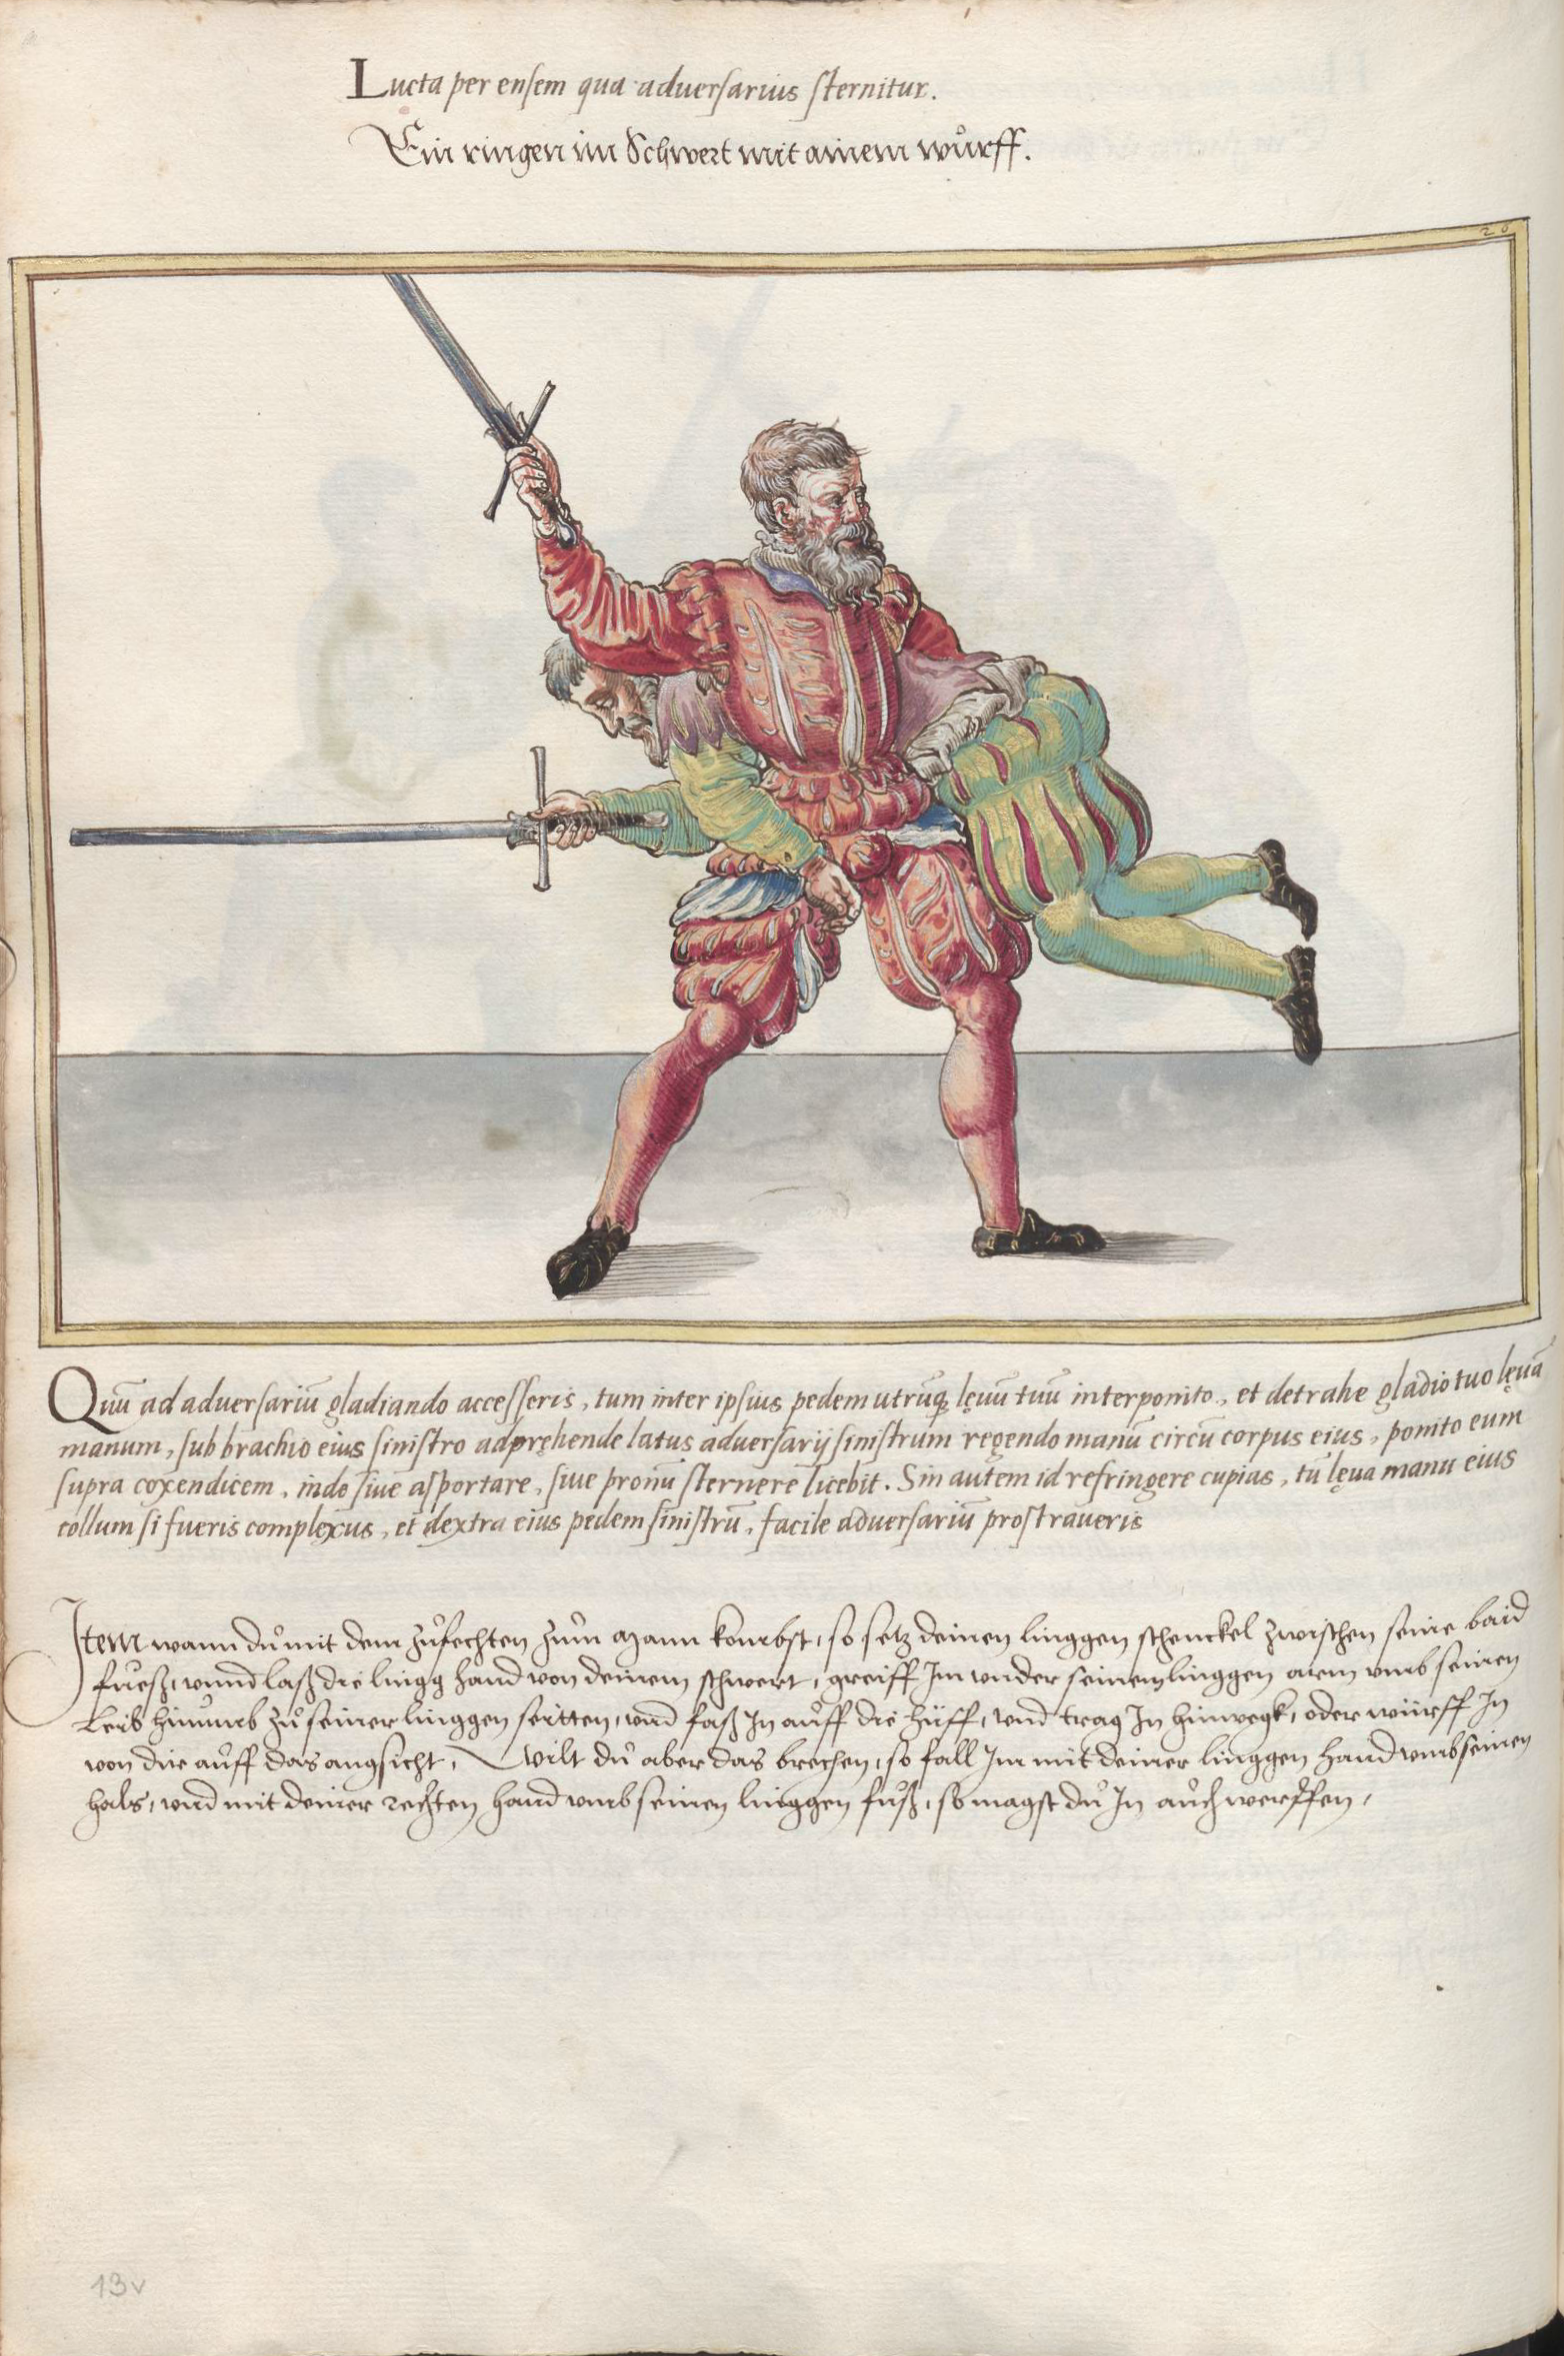 Lucta per ensem qua adversarius sternitur.
Ein ringen im Schwert mit ainem wu̇rff.
26
Quū ad adversariū gladiando accesseris, tum inter ipsius pedem utrūq; lęvū tuū interponito, et detrahe gladio tuo lęvā
manum, sub brachio eius sinistro adpręhende latus adversarij sinistrum regendo manū circū corpus eius, ponito eum
supra coxendicem, inde sive asportare, sive pronū sternere licebit. Sin autem id refringere cupias, tū lęva manu eius
collum si fueris complexus, et dextra eius pedem sinistrū, facile adversariū prostraveris
Item wann du mit dem zufechten zum Mann kombst, so setz deinen linggen schenckel zwischen seine baid
fuesß, vnnd laß die lingg hand von deinem schwert, greiff Im vnder seinem linggen arm vmb seinen
Leib hinumb zu seiner linggen seitten, vnd faß In auff die hüff, vnd trag In hinwegk, oder würff In
von dir auff das angsicht, Wilt du aber das brechen, so fall Im mit deiner linggen hand vmb seinen
hals, vnd mit deiner rechten hand vmb seinen linggen fuß, so magst du In auch werffen,
13v